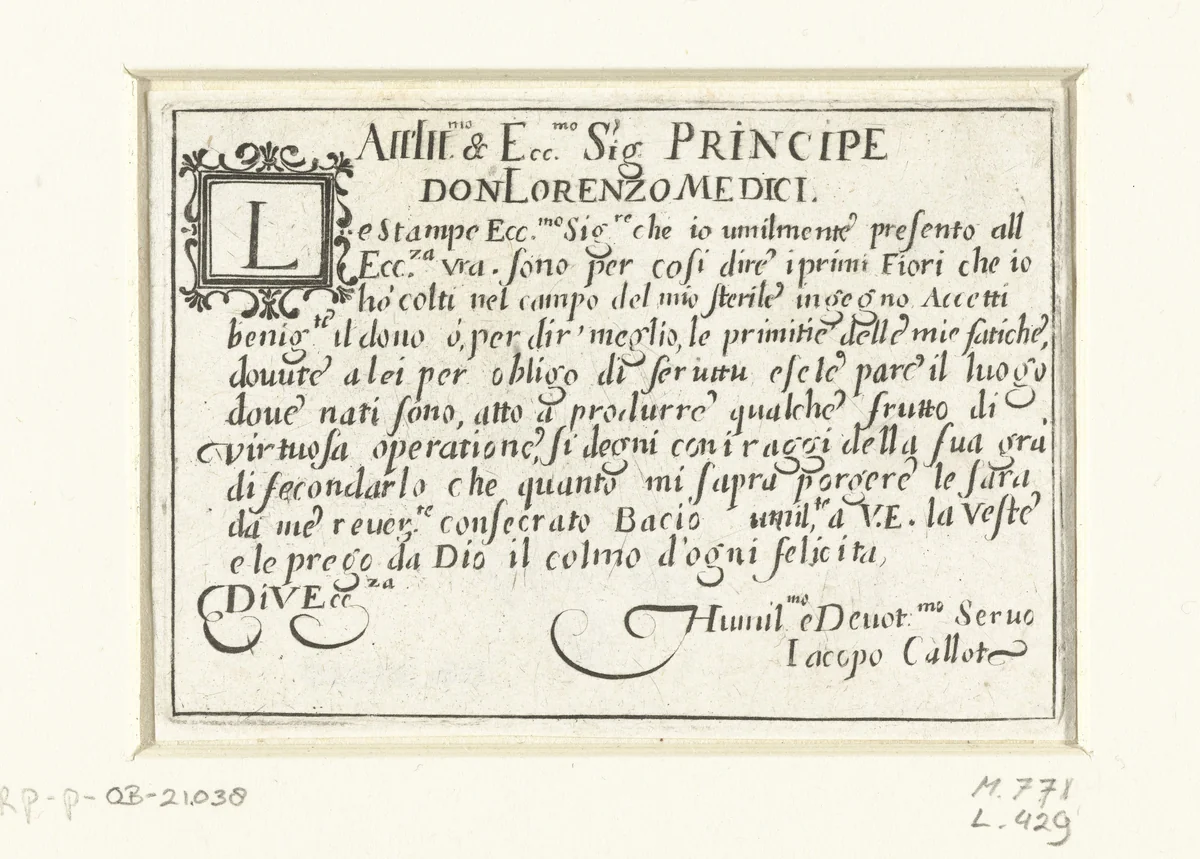 All Ill.mo & Ecc.mo Sig. PRiNCIPE
DON LORENZO MEDICI.
L
e Stampe Ecc.mo Sig.re che io umilmente presento all
Ecc.za vra. sono per cosi dire i primi Fiori che io
hò colti nel campo del mio sterile ingegno. Accetti
benig.te il dono ó, per dir' meglio, le primitie delle mie fatiche,
douute a lei per obligo di seruitu e se le pare il luogo
doue nati sono, atto a produrre qualche frutto di
virtuosa operatione, si degni con i raggi della sua grã
di fecondarlo che quanto mi sapra porgere le sara
da me reuer.te consecrato Bacio umil.te a V.E. la Veste
e le prego da Dio il colmo d'ogni felicita,
Di V Ecc za
Humil.mo e Deuot.mo Seruo
Iacopo Callot
RP-P-OB-21.038
M. 771
L. 429